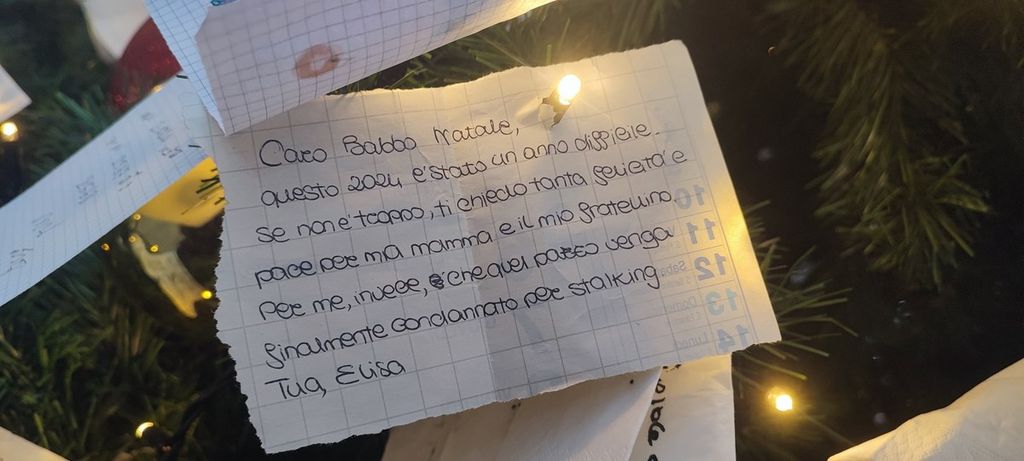 Caro Babbo Natale,
questo 2024 è stato un anno difficile.
Se non è troppo, ti chiedo tanta felicità e
pace per mia mamma e il mio fratellino.
Per me, invece, che quel pazzo venga
finalmente condannato per stalking
Tua, Elisa
10
11
12
13
14